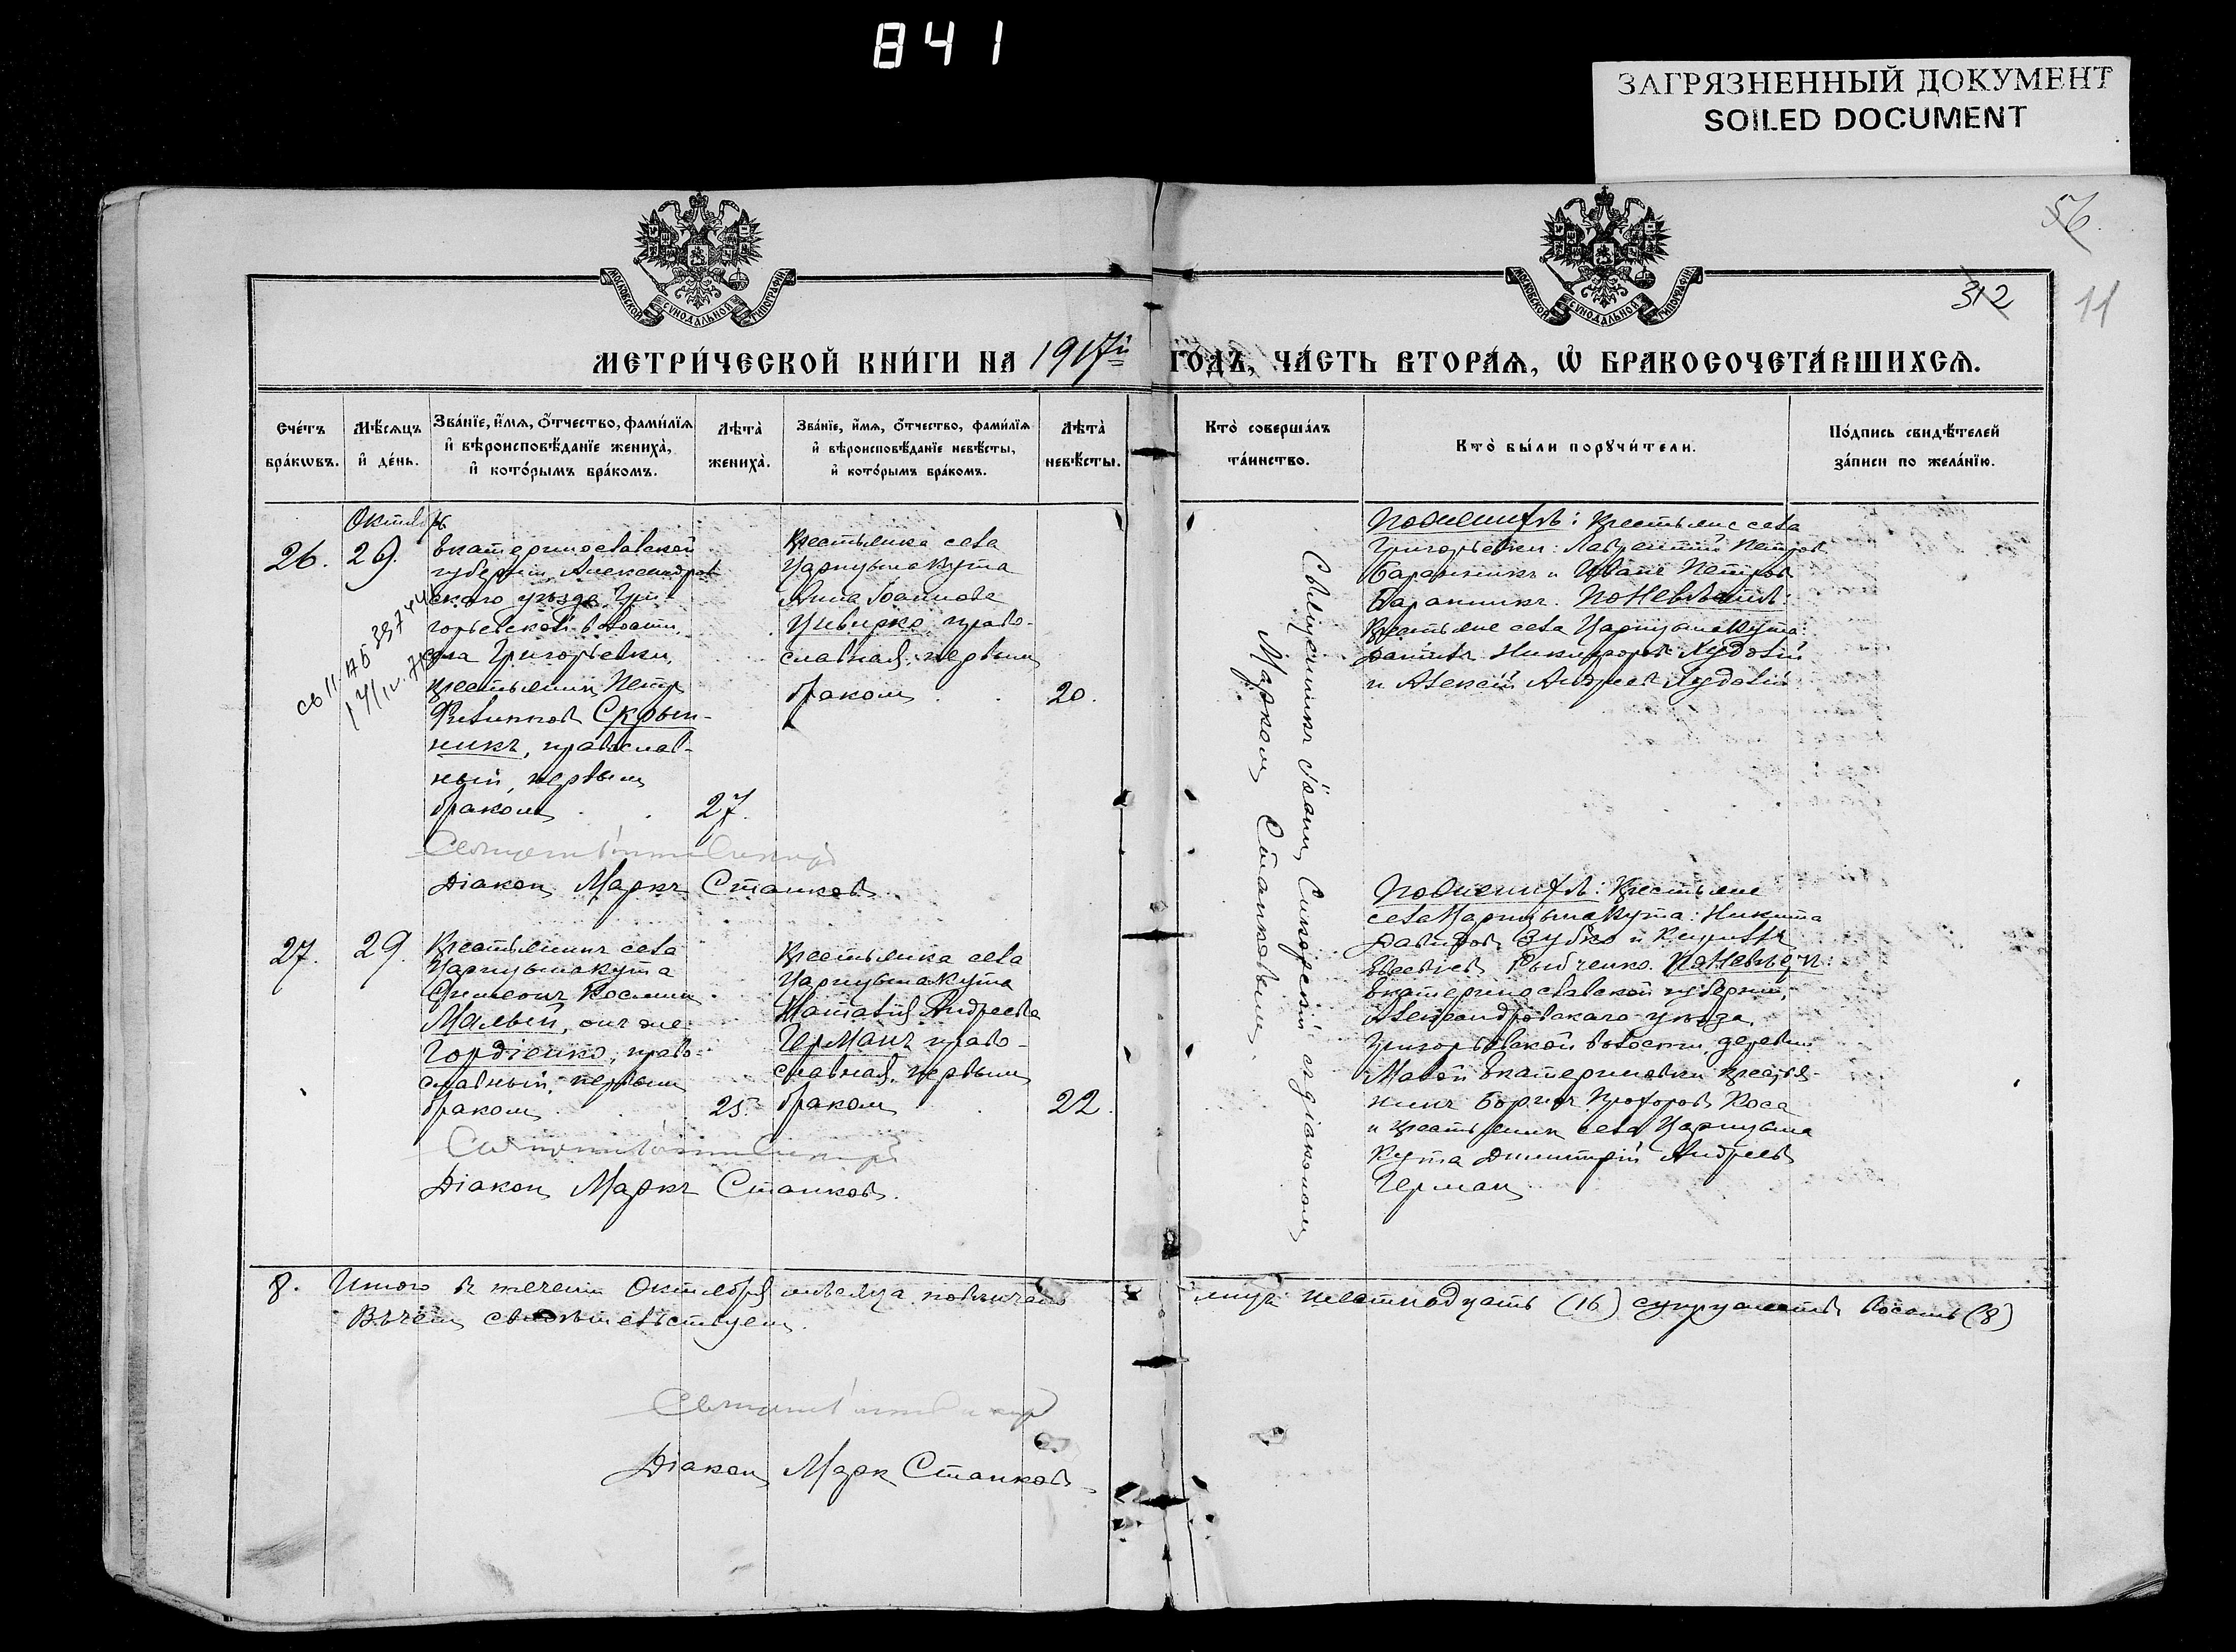 841
ЗАГРЯЗНЕННЫЙ ДОКУМЕНТ
SOILED DOCUMENT
56.
312
11
МОСКОВСКОЙ СѴНОДАЛЬНОЙ ТИПОГРАФІИ
МОСКОВСКОЙ СѴНОДАЛЬНОЙ ТИПОГРАФІИ
МЕТРИ́ЧЕСКОЙ КНИ́ГИ НА 1917й ГОДЪ, ЧА́СТЬ ВТОРА́Ѧ, Ѡ҆ БРАКОСОЧЕТА́ВШИХСѦ.
Сче́тъ бра́кѡвъ.
Мѣ́сѧцъ и҆ де́нь.
Зва́нїе, и҆́мѧ, ѻ҆́тчество, фами́лїѧ и҆ вѣроисповѣ́данїе жениха̀, и҆ кото́рымъ бра́комъ.
Лѣ́та̀ жениха̀.
Зва́нїе, и҆́мѧ, ѻ҆́тчество, фами́лїѧ и҆ вѣроисповѣ́данїе невѣ́сты, и҆ кото́рымъ бра́комъ.
Лѣ́та̀ невѣ́сты.
Кто̀ соверша́лъ та́инство.
Кто̀ бы́ли порꙋчи́тели.
По́дпись свидѣ́телей за́писи по жела́нїю.
Октябрь
26.
29.
Екатеринославской
губерніи, Александров
скаго уѣзда, Гри-
горьевской волости,
села Григорьевки,
крестьянинъ Петръ
Скрын-
никъ, православ-
ный, первым
бракомъ
27.
Крестьянка села
Царицына Кута
Анна Іоаннова
Цивирко, право-
славная, первым
бракомъ
20.
Діаконъ Маркъ Станковъ.
Священникъ Іоаннъ Сикорскій съ діакономъ
Маркомъ Станковымъ.
По женихѣ: Крестьяне села
Григорьевки: Лаврентій Петров
Баранникъ и Иванъ Петровъ
Баранникъ. По невѣстѣ:
Крестьяне села Царицына Кута:
Даніилъ Никифоровъ Худолій
и Алексій Андреевъ Худолій
27.
29.
Крестьянинъ села
Царицына Кута
Симеонъ Космин
Малый, онъ же
Гордіенко, право-
славный, первым
бракомъ
25.
Крестьянка села
Царицына Кута
Наталія Андреева
Германъ право-
славная, первымъ
бракомъ
22.
Діаконъ Маркъ Станковъ.
По женихѣ: Крестьяне
села Царицына Кута: Никита
Давидовъ Зубко и Кириллъ
Рыбченко. По невѣстѣ:
Екатеринославской губерніи,
Александровскаго уѣзда,
Григорьевской волости, деревни
Малой Екатериновки крестья-
нинъ Борисъ Прохоровъ Коса
и крестьянин села Царицына
Кута Димитрій Андреевъ
Германъ
8. Итого въ теченіи Октября мѣсяца повѣнчано лицъ шестнадцать (16) супружествъ восемь (8)
Въ чемъ свидѣтельствуемъ.
Діаконъ Маркъ Станковъ.